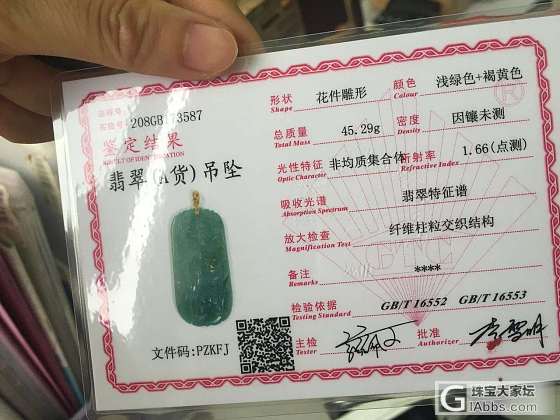 208GB 73587
鉴定结果
RESULT OF IDENTIFICATION
翡翠(A货)吊坠
文件码:PZKFJ
形状 花件雕形 颜色 浅绿色+褐黄色
Shape Colour
总质量 45.29g 密度 因镶未测
Total Mass Density
光性特征 非均质集合体 折射率 1.66(点测)
Optic Character Refractive Index
吸收光谱 翡翠特征谱
Absorption Spectrum
放大检查 纤维柱粒交织结构
Magnification Test
备注 ****
Remarks
检验依据 GB/T 16552 GB/T 16553
Testing Standard
主检 批准
Tester Authorizer
珠宝大家坛
L1Abbs.com